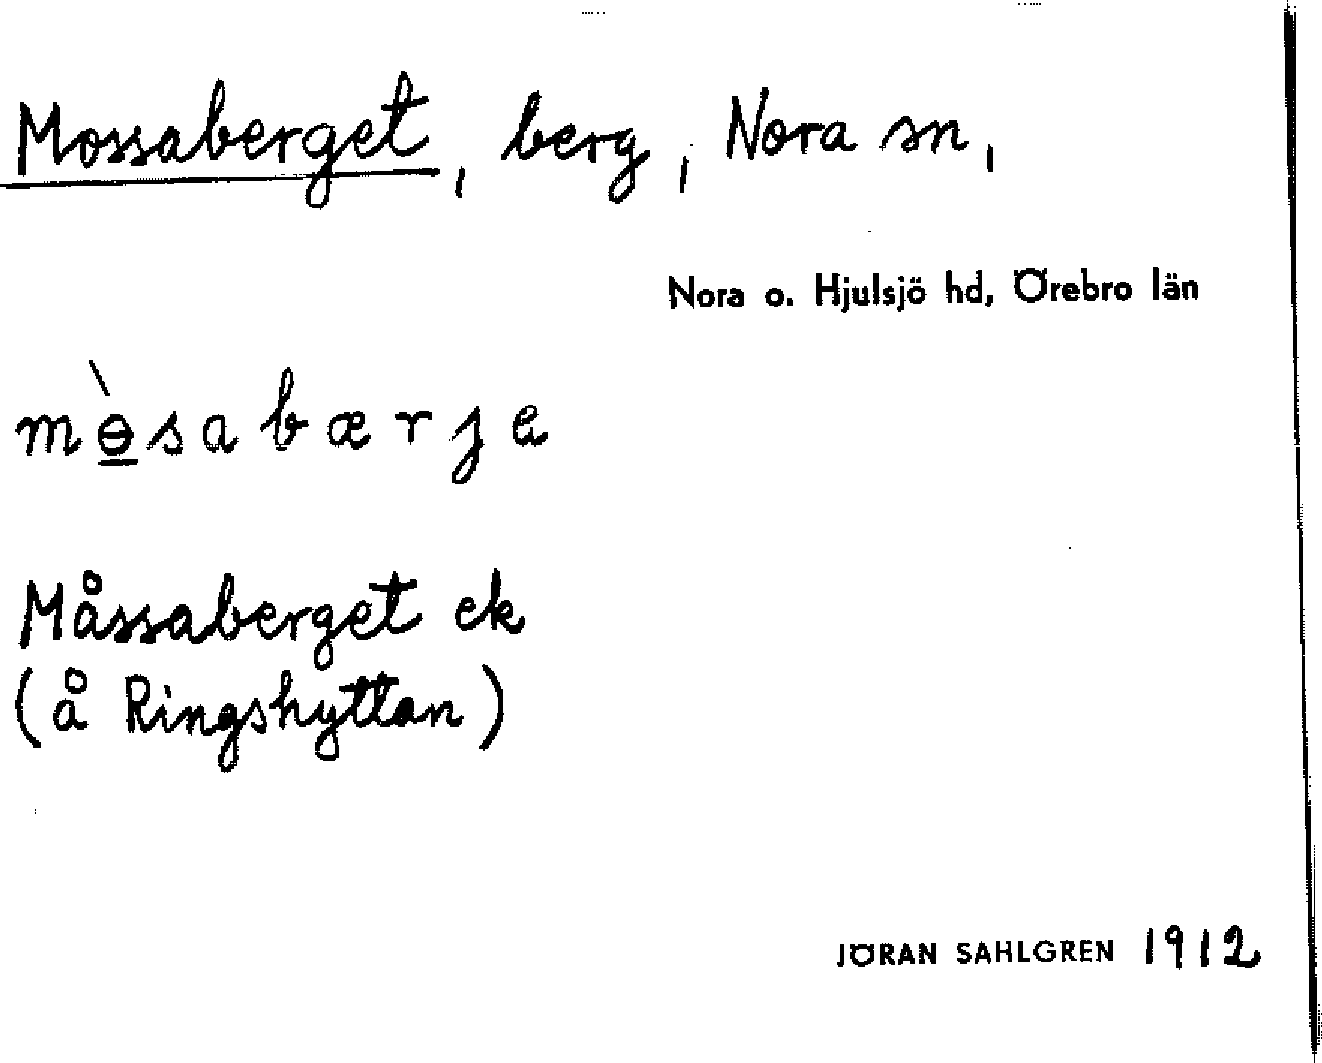 Mossaberget, berg, Nora sn,
Nora o. Hjulsjö hd, Örebro län
mɵ̲̀sabærje
Måssaberget ek
(å Ringshyttan)
JÖRAN SAHLGREN 1912